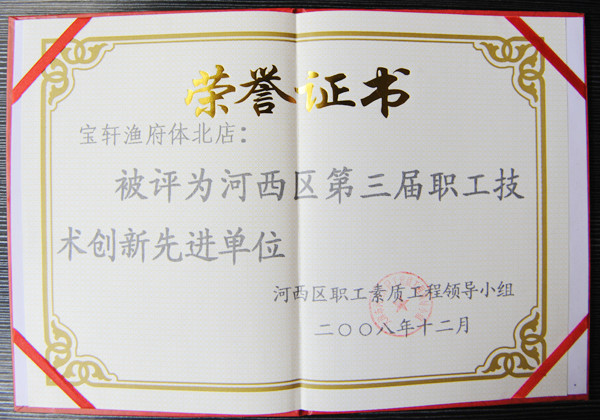 荣誉证书
宝轩渔府体北店：
被评为河西区第三届职工技
术创新先进单位
河西区职工素质工程领导小组
二〇〇八年十二月